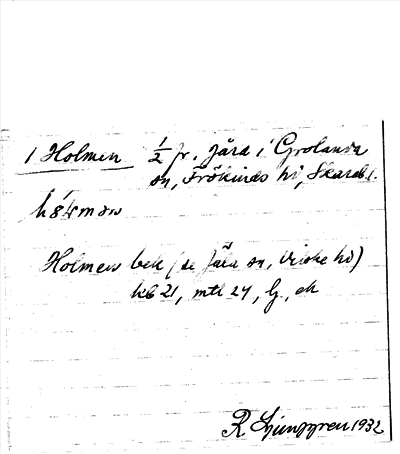 1 Holmen ½ fr. Jäla i Grolanda
sn, Frökinds hd, Skarab. l.
hå´lmən
Holmens bek (se Jäla sn, Vilske hd)
hb 21, mtl 24, lj., ek
R Ljunggren 1932